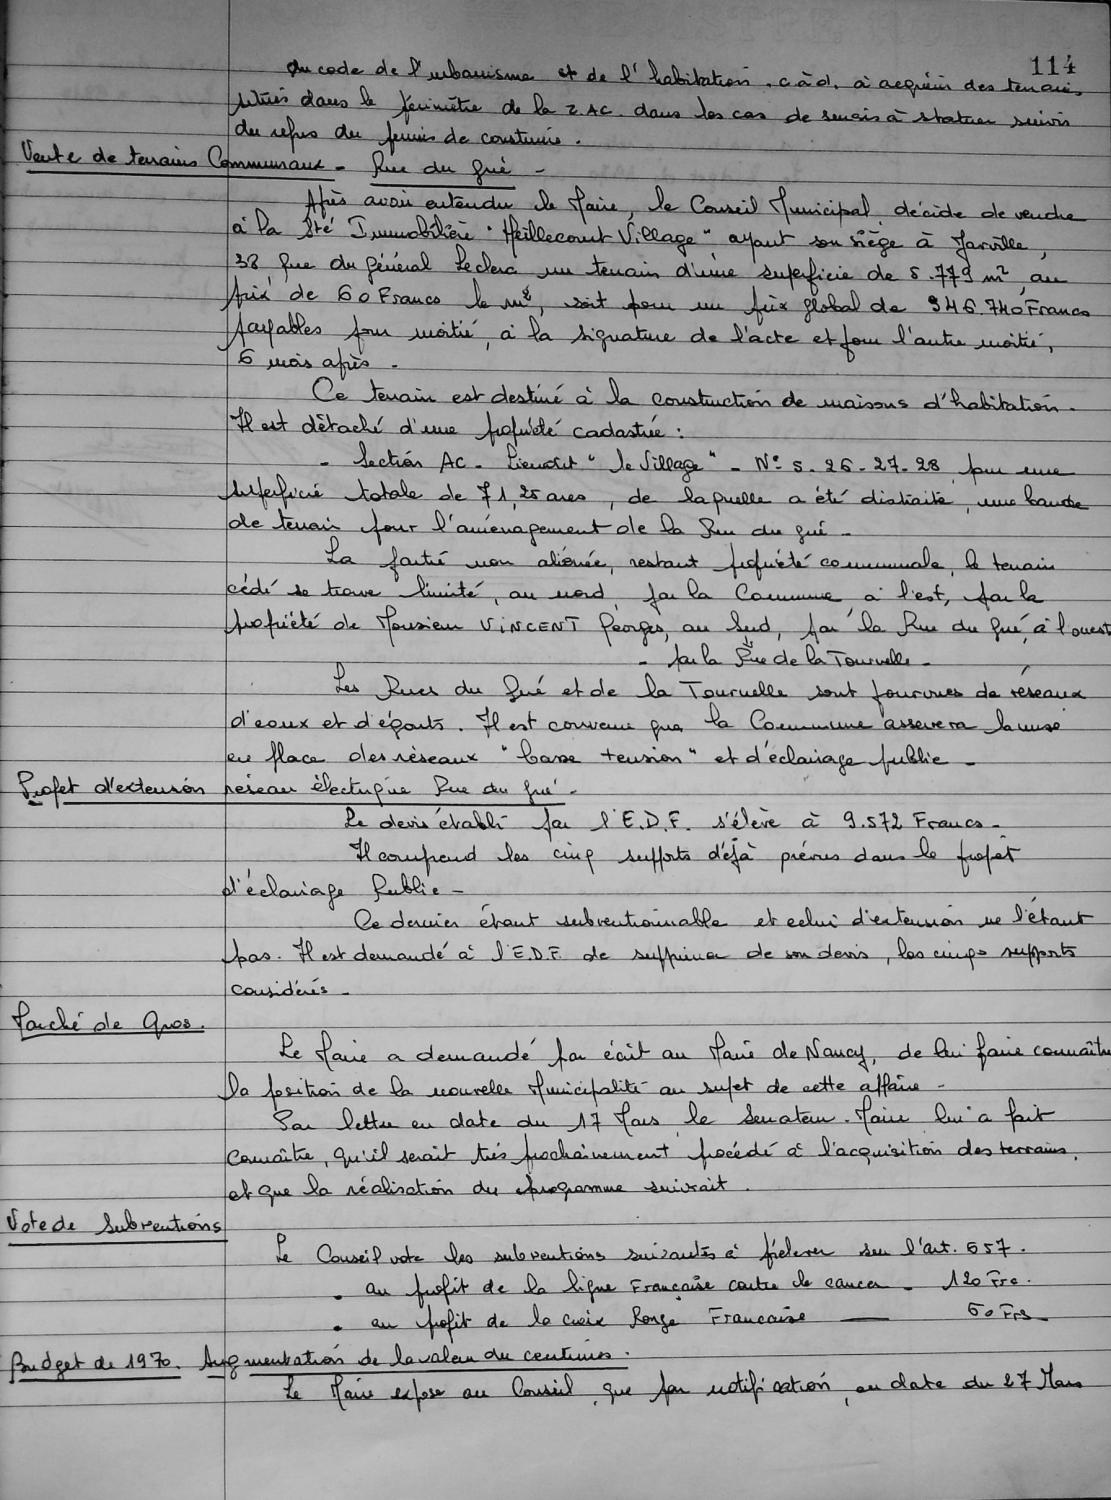 114
du code de l'urbanisme et de l'habitation, c.à.d. à acquérir des terrains
situés dans le périmètre de la Z.AC. dans les cas de sursis à statuer suivis
du refus du permis de construire.
Vente de terrains Communaux - Rue du Gué -
Après avoir entendu le Maire, le Conseil Municipal, décide de vendre
à la Sté Immobilière "Heillecourt Village" ayant son siège à Jarville,
38, Rue du Général Leclerc un terrain d'une superficie de 5.779 m², au
prix de 60 Francs le m², soit pour un prix global de 346.740 Francs
payables pour moitié, à la signature de l'acte et pour l'autre moitié,
6 mois après -
Ce terrain est destiné à la construction de maisons d'habitation.
Il est détaché d'une propriété cadastrée :
- Section AC - Lieudit "le Village" - N° 5. 26 - 27 - 28 pour une
superficie totale de 71,25 ares, de laquelle a été distraite, une bande
de terrain pour l'aménagement de la Rue du Gué -
La partie non aliénée, restant propriété communale, le terrain
cédé se trouve limité, au nord, par la Commune, à l'est, par la
propriété de Monsieur VINCENT Georges, au Sud, par la Rue du Gué, à l'ouest
- par la Rue de la Tournelle -
Les Rues du Gué et de la Tournelle sont pourvues de réseaux
d'eaux et d'égouts. Il est convenu que la Commune assurera la mise
en place des réseaux "basse tension" et d'éclairage public -
Projet d'extension réseau électrique Rue du Gué -
Le devis établi par l'E.D.F. s'élève à 9.572 Francs -
Il comprend les cinq supports déjà prévus dans le projet
d'éclairage Public -
Ce dernier étant subventionnable et celui d'extension ne l'étant
pas. Il est demandé à l'E.D.F. de supprimer de son devis, les cinqs supports
considérés -
Marché de Gros.
Le Maire a demandé par écrit au Maire de Nancy, de lui faire connaître
la position de la nouvelle Municipalité au sujet de cette affaire -
Par lettre en date du 17 Mars, le Sénateur-Maire lui a fait
connaître, qu'il serait très prochainement procédé à l'acquisition des terrains,
et que la réalisation du programme suivrait.
Vote de Subventions
Le Conseil vote les subventions suivantes à prélever sur l'art. 657.
- au profit de la ligue Française contre le cancer - 120 Frs.
- au profit de la croix Rouge Française — 60 Frs
Budget de 1970. Augmentation de la valeur du centimes.
Le Maire expose au Conseil, que par notification, en date du 27 Mars